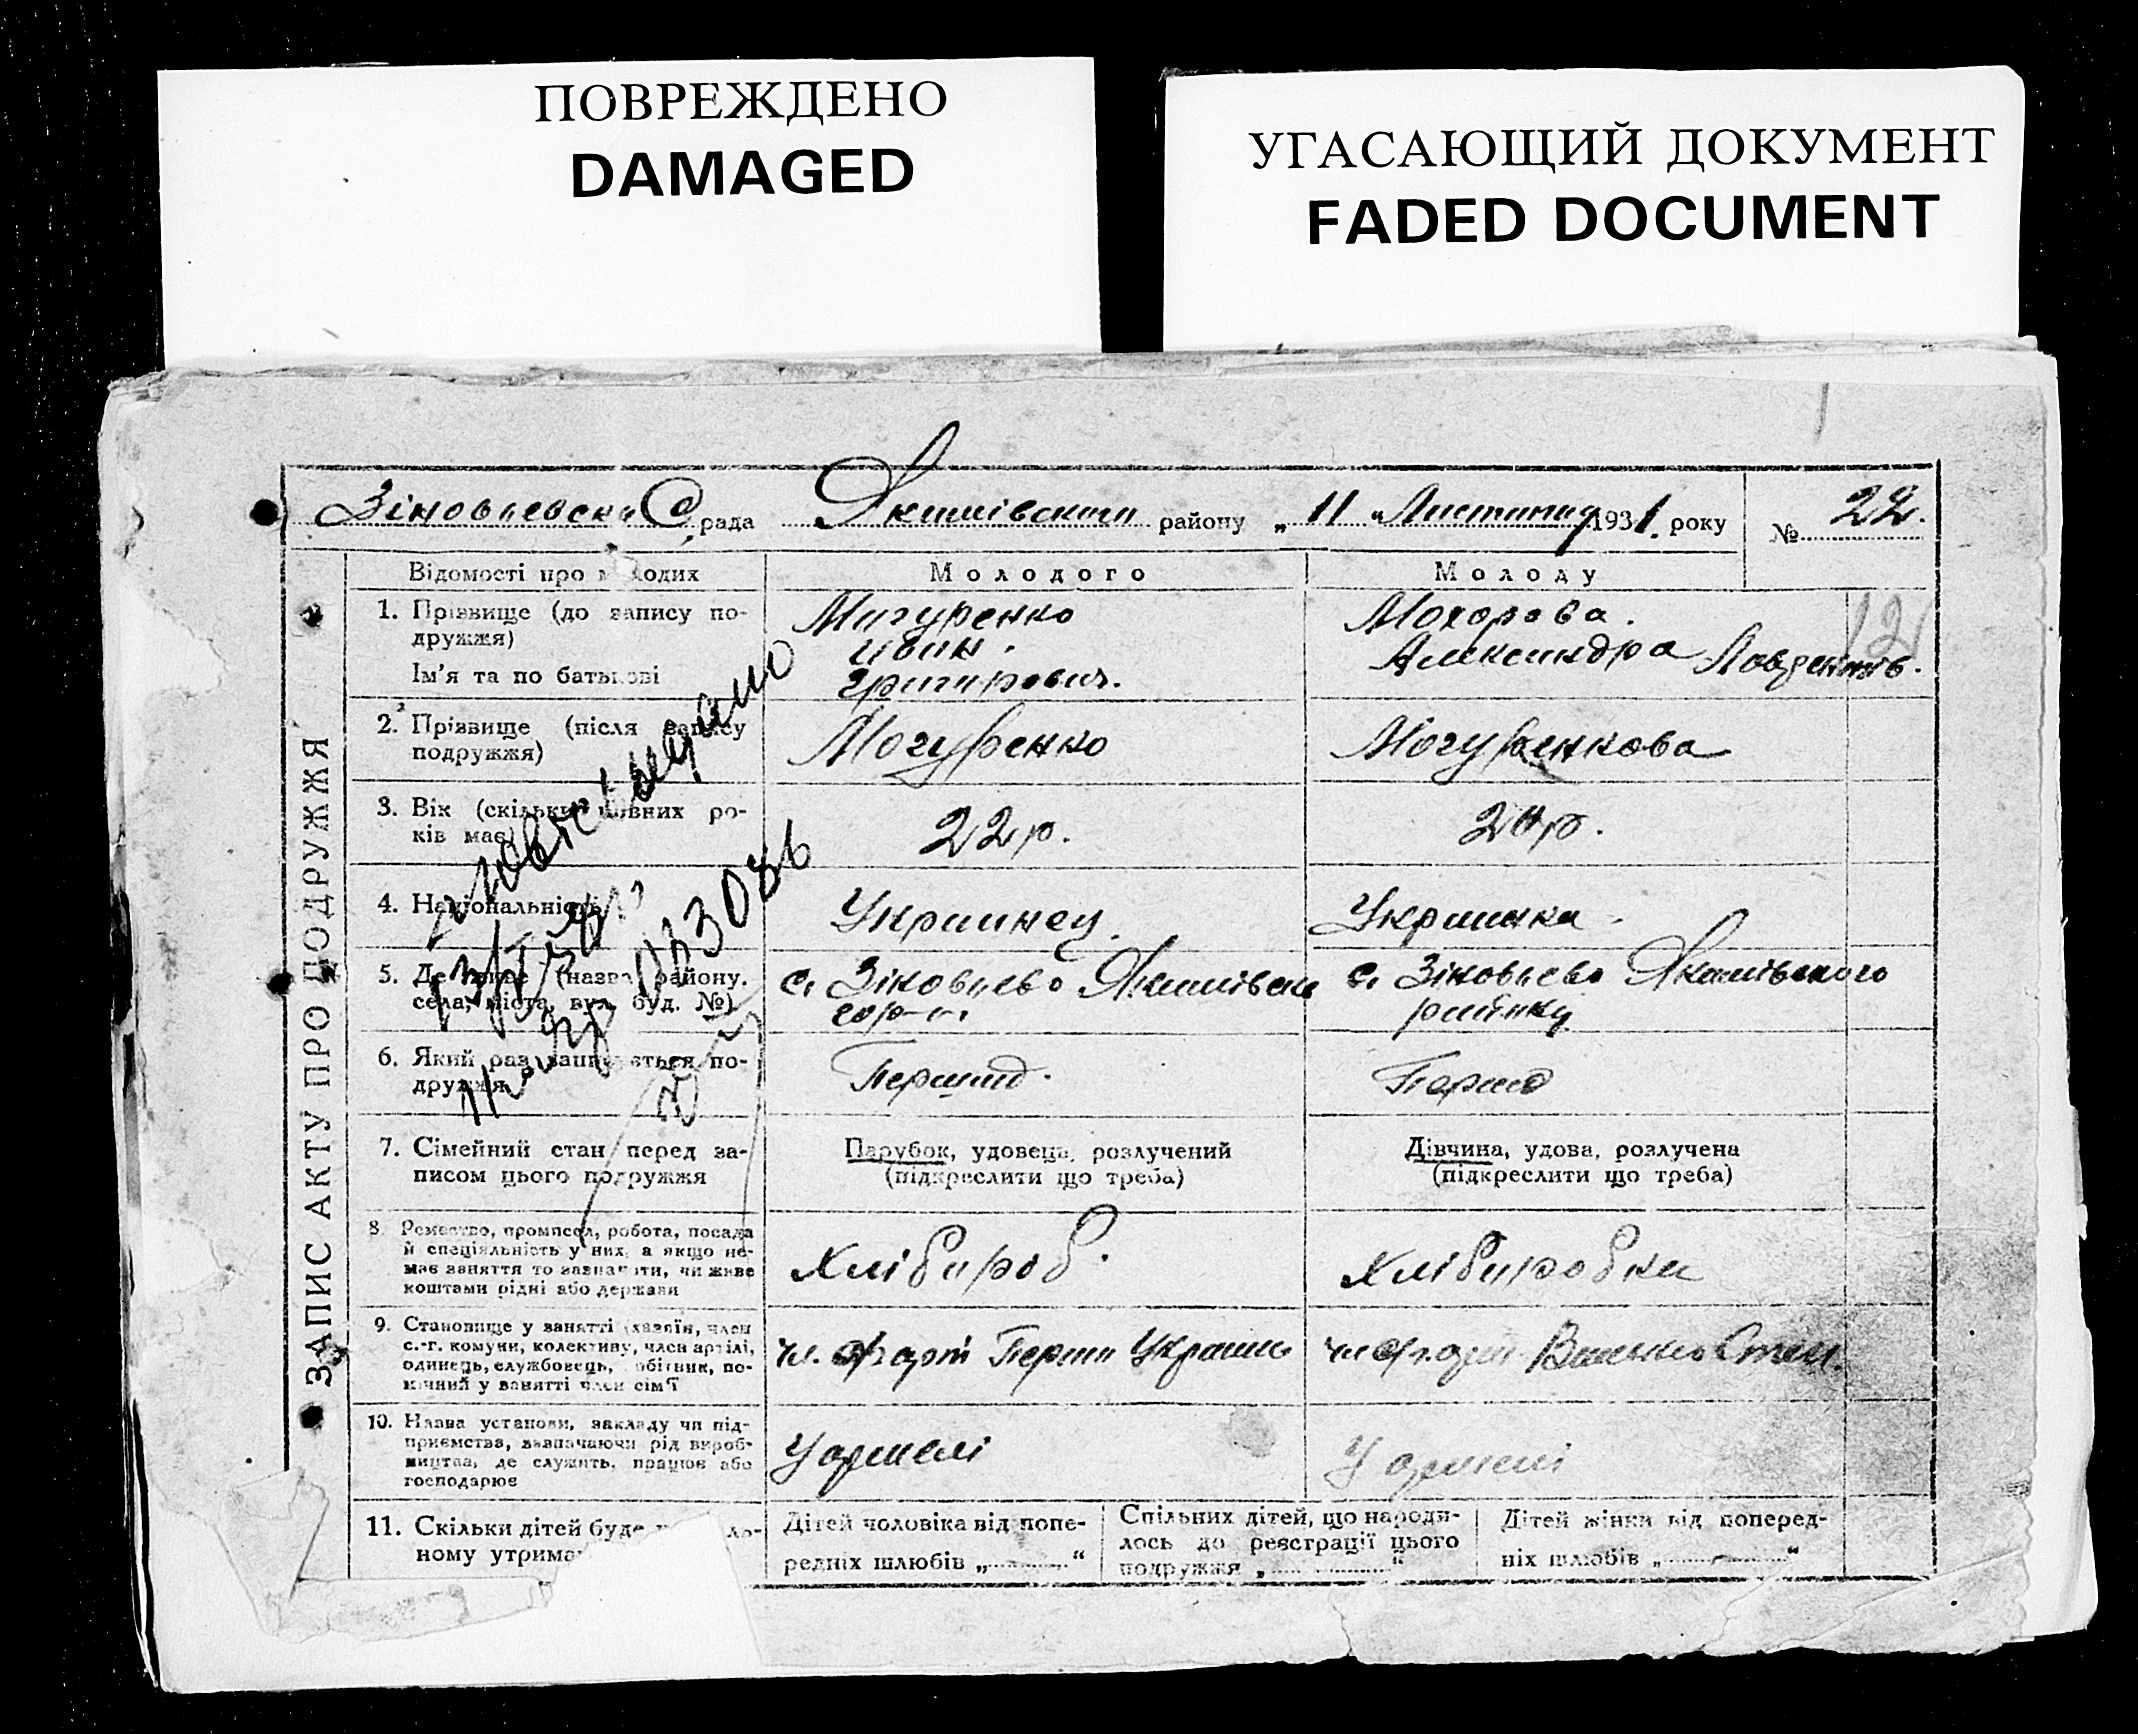 ПОВРЕЖДЕНО
DAMAGED
УГАСАЮЩИЙ ДОКУМЕНТ
FADED DOCUMENT
Зіновьевська С. рада Якимівського району „ 11 " Листопад 1931. року № 22.
ЗАПИС АКТУ ПРО ПОДРУЖЖЯ
Відомості про молодих
Молодого
Молоду
1. Прізвище (до запису по-
дружжя)
Ім'я та по батькові
Могуренко
Іван.
Григорович.
Мохорова.
Александра
121
2. Прізвище (після запису
подружжя)
Могуренко
Могуренкова
3. Вік (скільки повних ро-
ків має)
22 р.
20 р.
4. Національність
Украинец.
Украинка
5. Де живе (назва району.
села, міста, вул. буд. №)
с. Зіновьево
с. Зіновьево Якимівського
району
6. Який раз записується по-
дружжя
Перший.
Перше
7. Сімейний стан перед за-
писом цього подружжя
Парубок, удовець, розлучений
(підкреслити що треба)
Дівчина, удова, розлучена
(підкреслити що треба)
8. Ремество, промисел, робота, посада
й спеціяльність у них, а якщо не-
має заняття то зазначити, чи живе
коштами рідні або держави
Хлібороб.
Хлiборобка
9. Становище у занятті (хазяїн, член
с.-г. комуни, колективу, член артілі,
одинець, службовець, робітник, по-
мічний у занятті член сім'ї
чл. Перша
10. Назва установи, закладу чи під-
приємства, зазначаючи рід вироб-
ництва, де служить, працює або
господарює
У артелі
У артелі
11. Скільки дітей буде
ному утриман
Дітей чоловіка від попе-
редніх шлюбів „ "
Спільних дітей, що народи-
лось до реєстрації цього
подружжя „ "
Дітей жінки від поперед-
ніх шлюбів „ - "